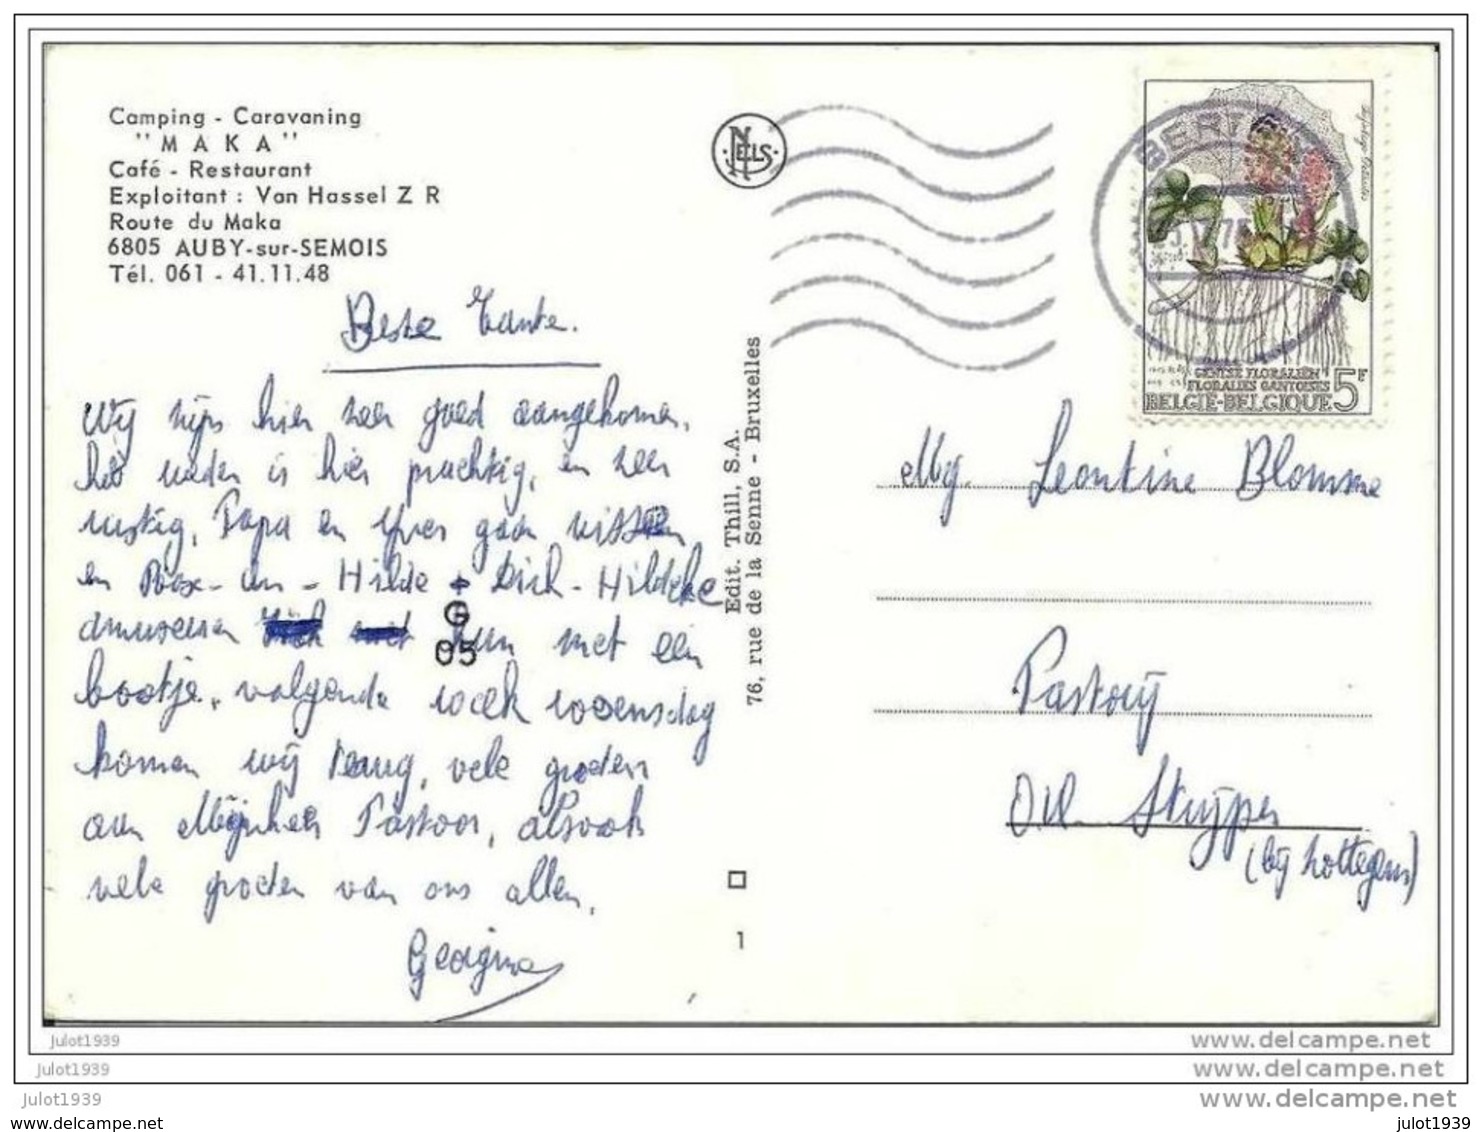 Camping - Caravaning
"MAKA"
Café - Restaurant
Exploitant : Van Hassel Z R
Route du Maka
6805 AUBY-sur-SEMOIS
Tél. 061 - 41.11.48
NELS
Beste Tante.
Wij zijn hier zeer goed aangekomen,
het weder is hier prachtig, en zeer
rustig, Papa en Yves gaan vissen
en - Hilde + Dirk - Hildeke
amuseren hun met een
bootje, volgende week woensdag
komen wij terug, vele groeten
aan Mijnheer Pastoor, alsook
vele groeten van ons allen,
Georgina
G
05
Edit. Thill, S.A.
76, rue de la Senne - Bruxelles
1
BERT
GENTSE FLORALIËN
FLORALIES GANTOISES
BELGIE-BELGIQUE 5F
Mej. Leontine Blomme
Pastorij
St. Stuypen
(bij Zottegem)
julot1939
julot1939
julot1939
julot1939
www.delcampe.net
www.delcampe.net
www.delcampe.net
julot1939